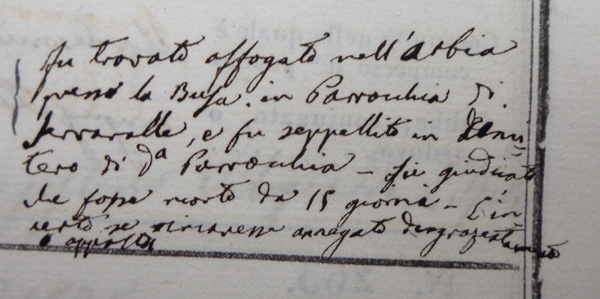 fu trovato affogato nell'Arbia
presso la Busa in Parrocchia di
Serravalle, e fu seppellito in Cimi=
tero di dᵃ Parrocchia – fu giudicato
che fosse morto da 15 giorni – È in
certo se rimanesse annegato disgraziatamente
o apposta